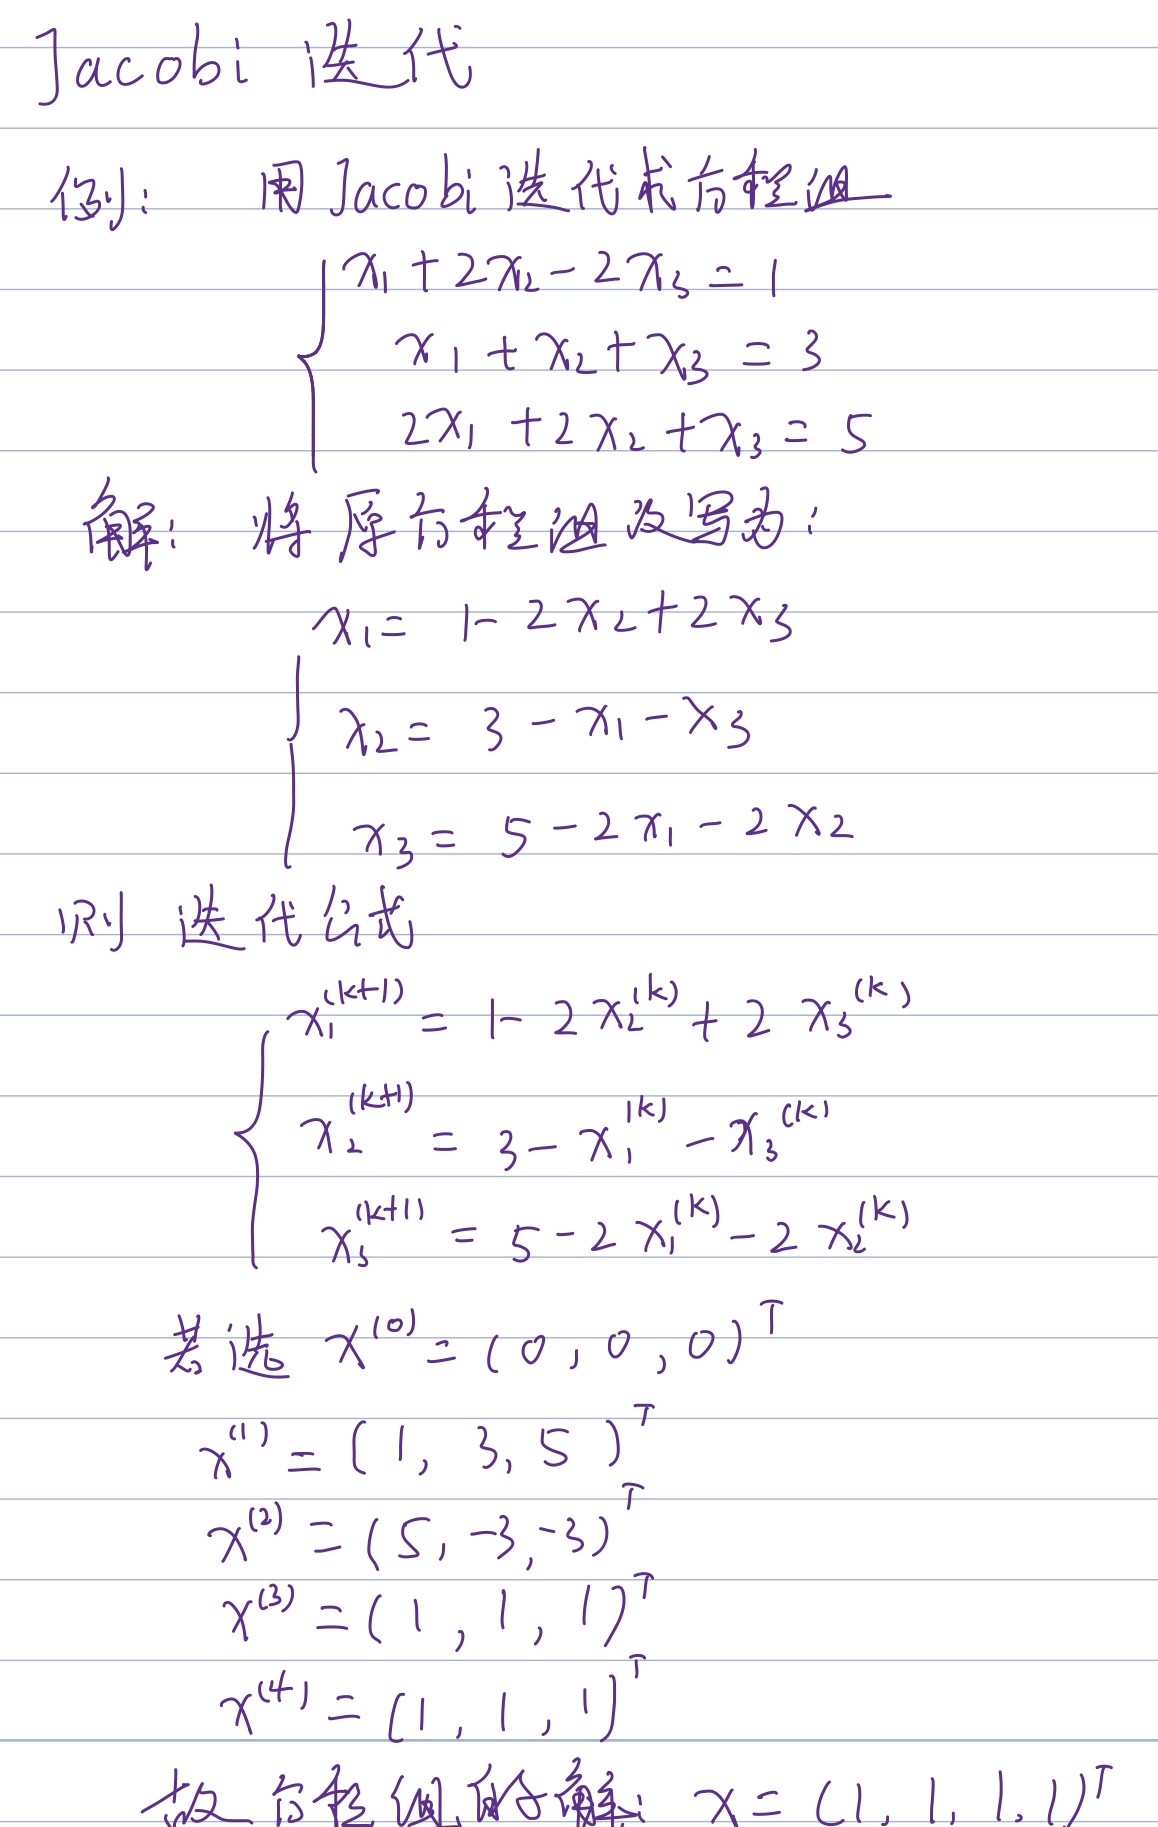 Jacobi 迭代
例: 用Jacobi迭代求方程组
x₁+2x₂-2x₃=1
x₁+x₂+x₃=3
2x₁+2x₂+x₃=5
解: 将原方程组改写为:
x₁= 1-2x₂+2x₃
x₂= 3-x₁-x₃
x₃= 5-2x₁-2x₂
则 迭代公式
x₁^(k+1) = 1-2x₂^(k)+2x₃^(k)
x₂^(k+1) = 3-x₁^(k)-x₃^(k)
x₃^(k+1) = 5-2x₁^(k)-2x₂^(k)
若选 x^(0)=(0,0,0)^T
x^(1)=(1,3,5)^T
x^(2)=(5,-3,-3)^T
x^(3)=(1,1,1)^T
x^(4)=(1,1,1)^T
故方程组的解: x=(1,1,1,1)^T